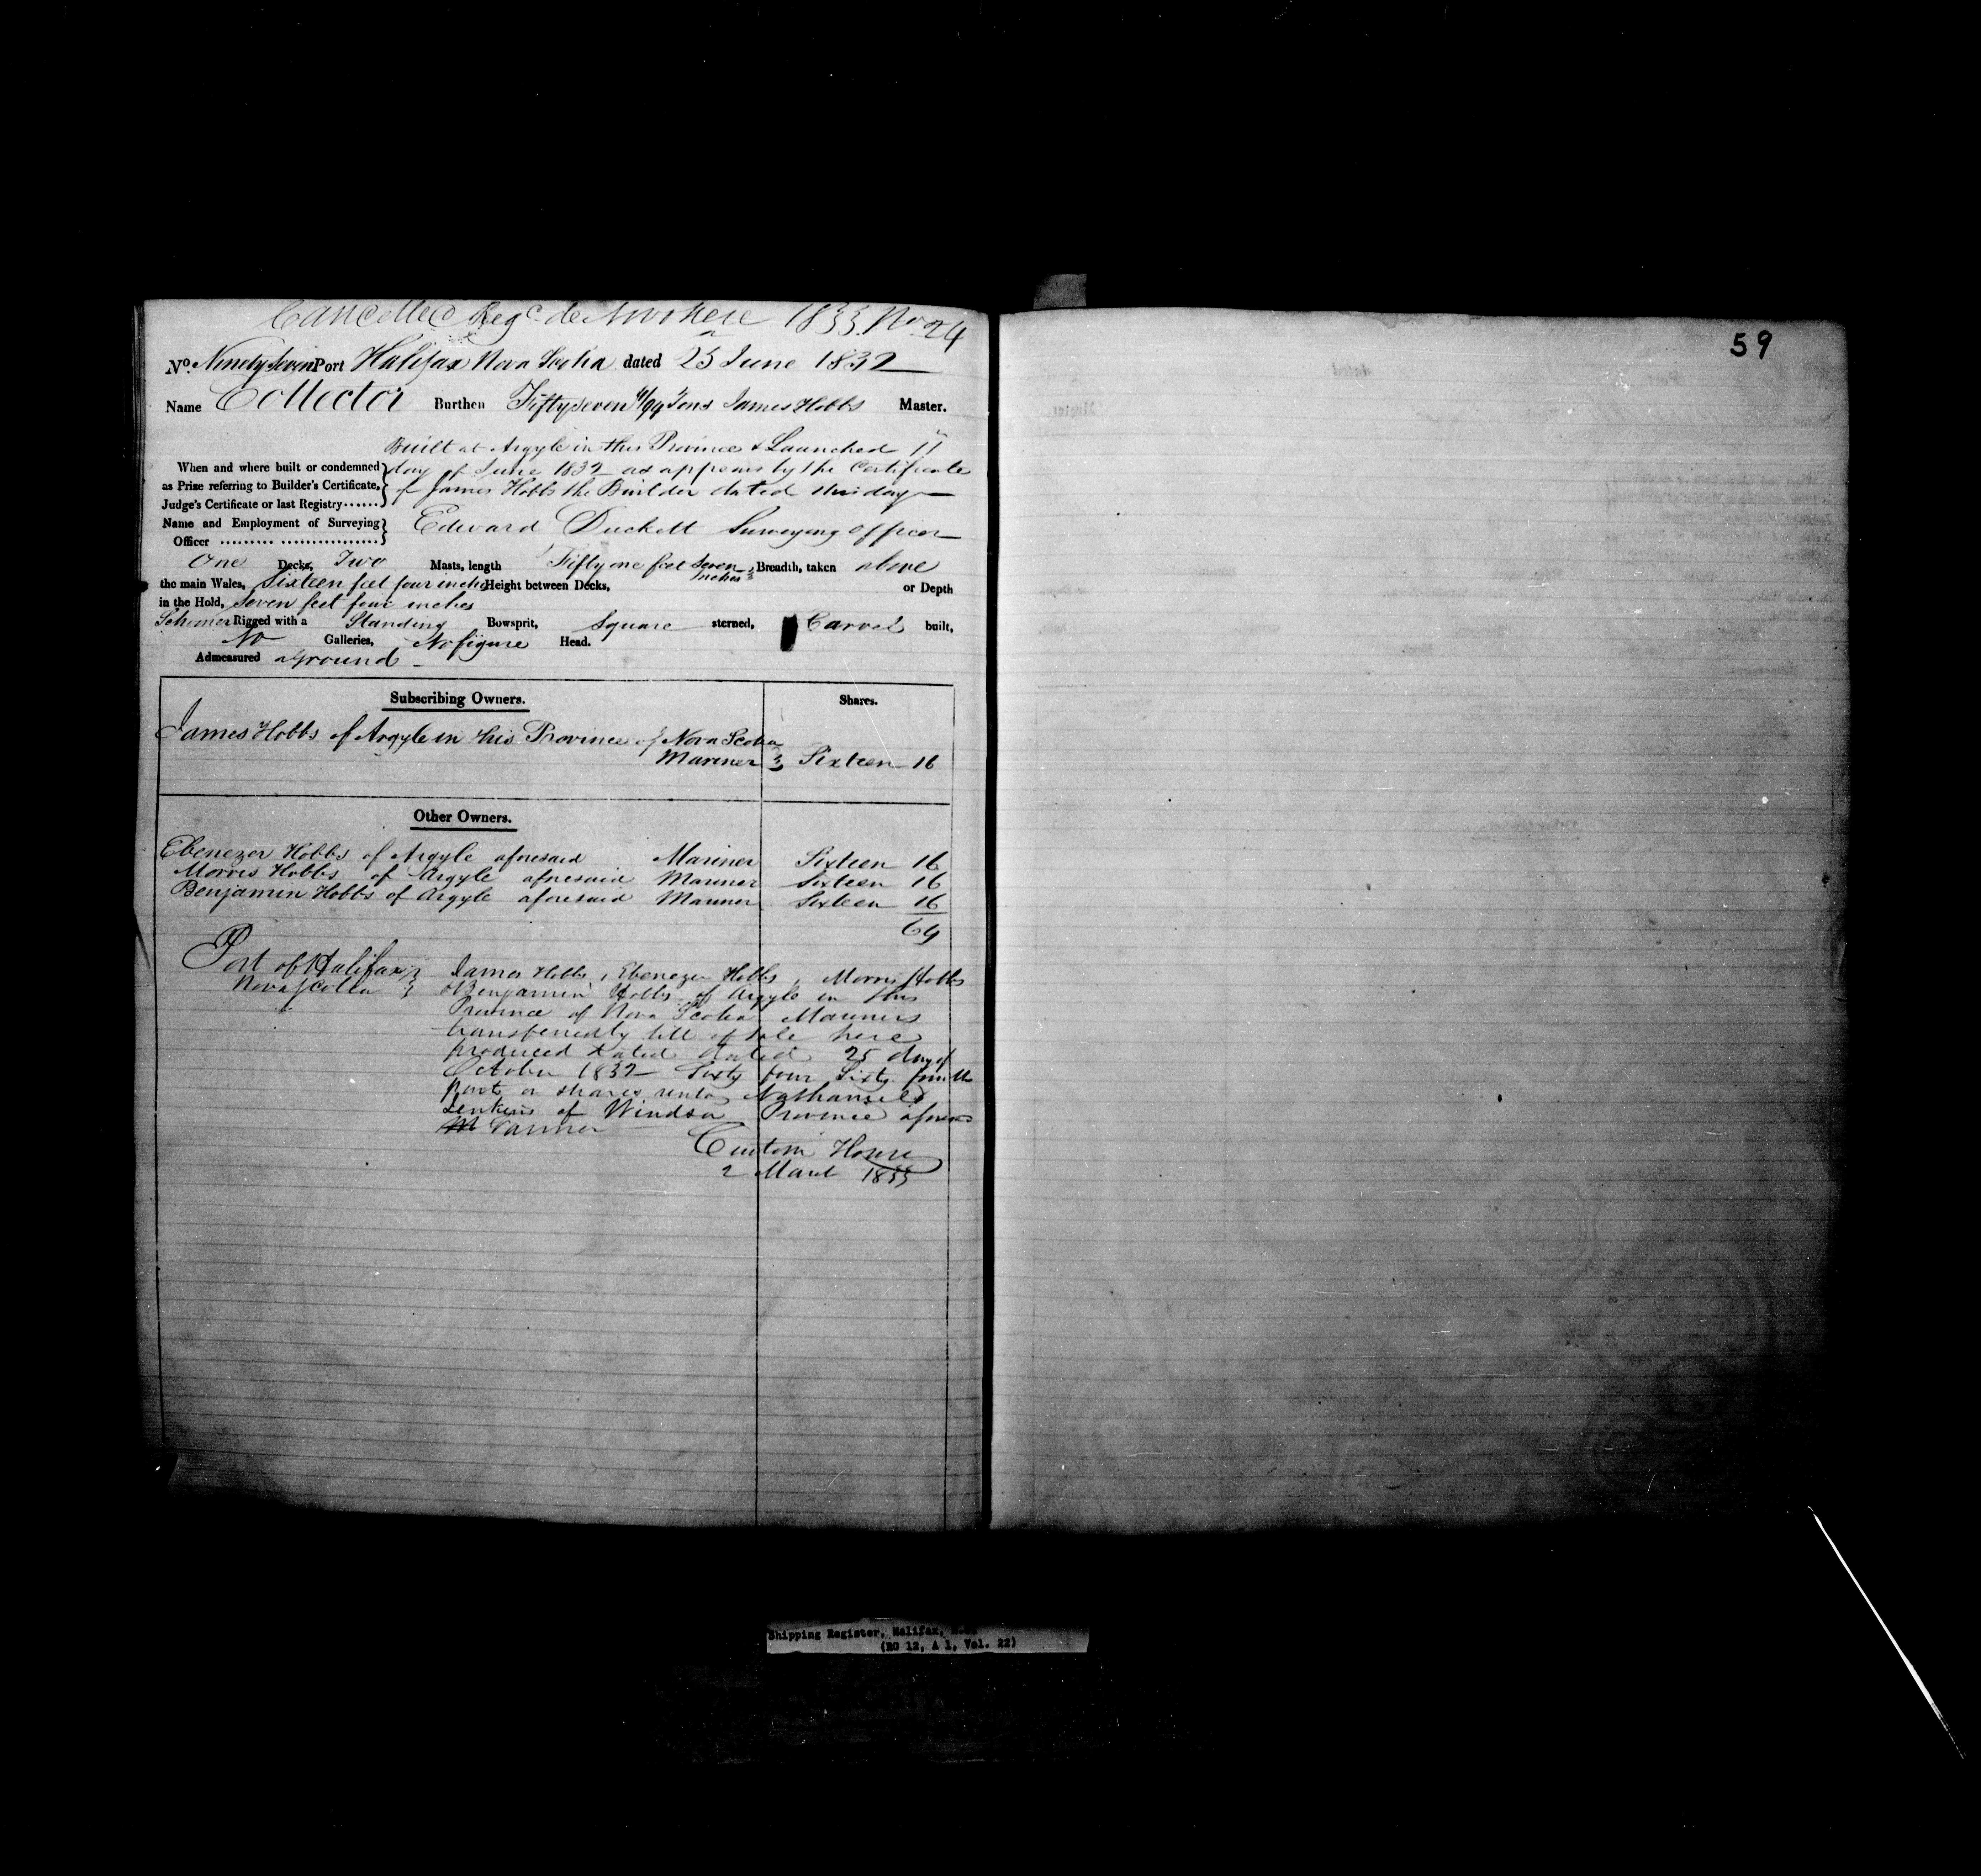 Cancelled Regd de Novo here 1833. No 24
59
No. Ninety Seven Port Halifax Nova Scotia dated 25 June 1832
Name Collector Burthen Fifty seven Tons James Hobbs Master.
Built at Argyle in this Province & Launched 11
When and where built or condemned day of June 1832 as appears by the Certificate
as Prize referring to Builder's Certificate, of James Hobbs the Builder dated this day
Judge's Certificate or last Registry......
Name and Employment of Surveying Edward Duckett Surveying Officer
Officer ......... ................
One Decks, Two Masts, length Fifty one feet Seven Inches, Breadth, taken above
the main Wales, Sixteen feet four inches Height between Decks, or Depth
in the Hold, Seven feet four inches
Schooner Rigged with a Standing Bowsprit, Square sterned, Carvel built,
No Galleries, No figure Head.
Admeasured aground
Subscribing Owners. Shares.
James Hobbs of Argyle in this Province of Nova Scotia
Mariner Sixteen 16
Other Owners.
Ebenezer Hobbs of Argyle aforesaid Mariner Sixteen 16
Morris Hobbs of Argyle aforesaid Mariner Sixteen 16
Benjamin Hobbs of Argyle aforesaid Mariner Sixteen 16
64
Port of Halifax James Hobbs, Ebenezer Hobbs, Morris Hobbs
Nova Scotia & Benjamin Hobbs of Argyle in this
Province of Nova Scotia Mariners
transferred by bill of Sale here
produced dated 25 day of
October 1832 Sixty four Sixty fourth
parts or shares unto Nathaniel
Jenkins of Windsor Province
Farmer
Custom House
2 March 1833
Shipping Register, Halifax, N.S.
(RG 12, A 1, Vol. 22)